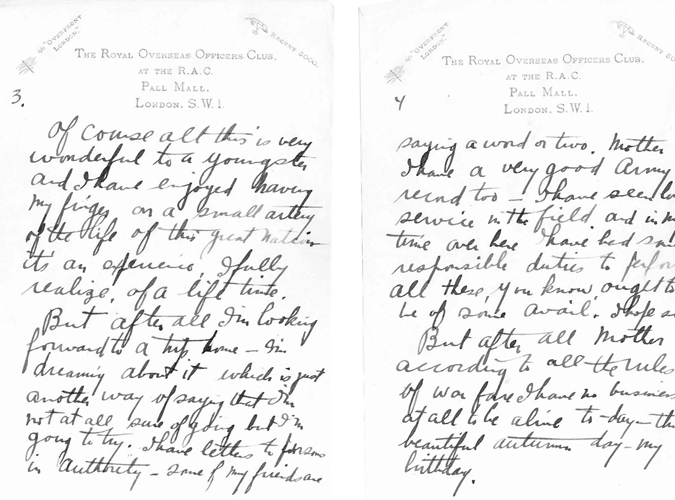 "OVERFRONT
LONDON."
REGENT 5000.
THE ROYAL OVERSEAS OFFICERS CLUB.
AT THE R.A.C.
PALL MALL.
LONDON, S.W.1.
3.
Of course all this is very
wonderful to a youngster
and I have enjoyed having
my finger on a small artery
of the life of this great nation
its an experience, I fully
realize, of a life time.
But after all I'm looking
forward to a trip home – I'm
dreaming about it which is just
another way of saying that I'm
not at all sure of going but I'm
going to try. I have letters to persons
in Authority – some of my friends are
"OVERFRONT
LONDON."
REGENT 50
THE ROYAL OVERSEAS OFFICERS CLUB.
AT THE R.A.C.
PALL MALL.
LONDON, S.W.1.
4
saying a word or two. Mother
I have a very good Army
record too – I have seen
service in the field and in m
time over here I have had
responsible duties to perfor
all these, you know, ought to
be of some avail. I hope so
But after all Mother
according to all the rules
of warfare I have no business
at all to be alive to-day – th
beautiful autumn day – my
birthday.